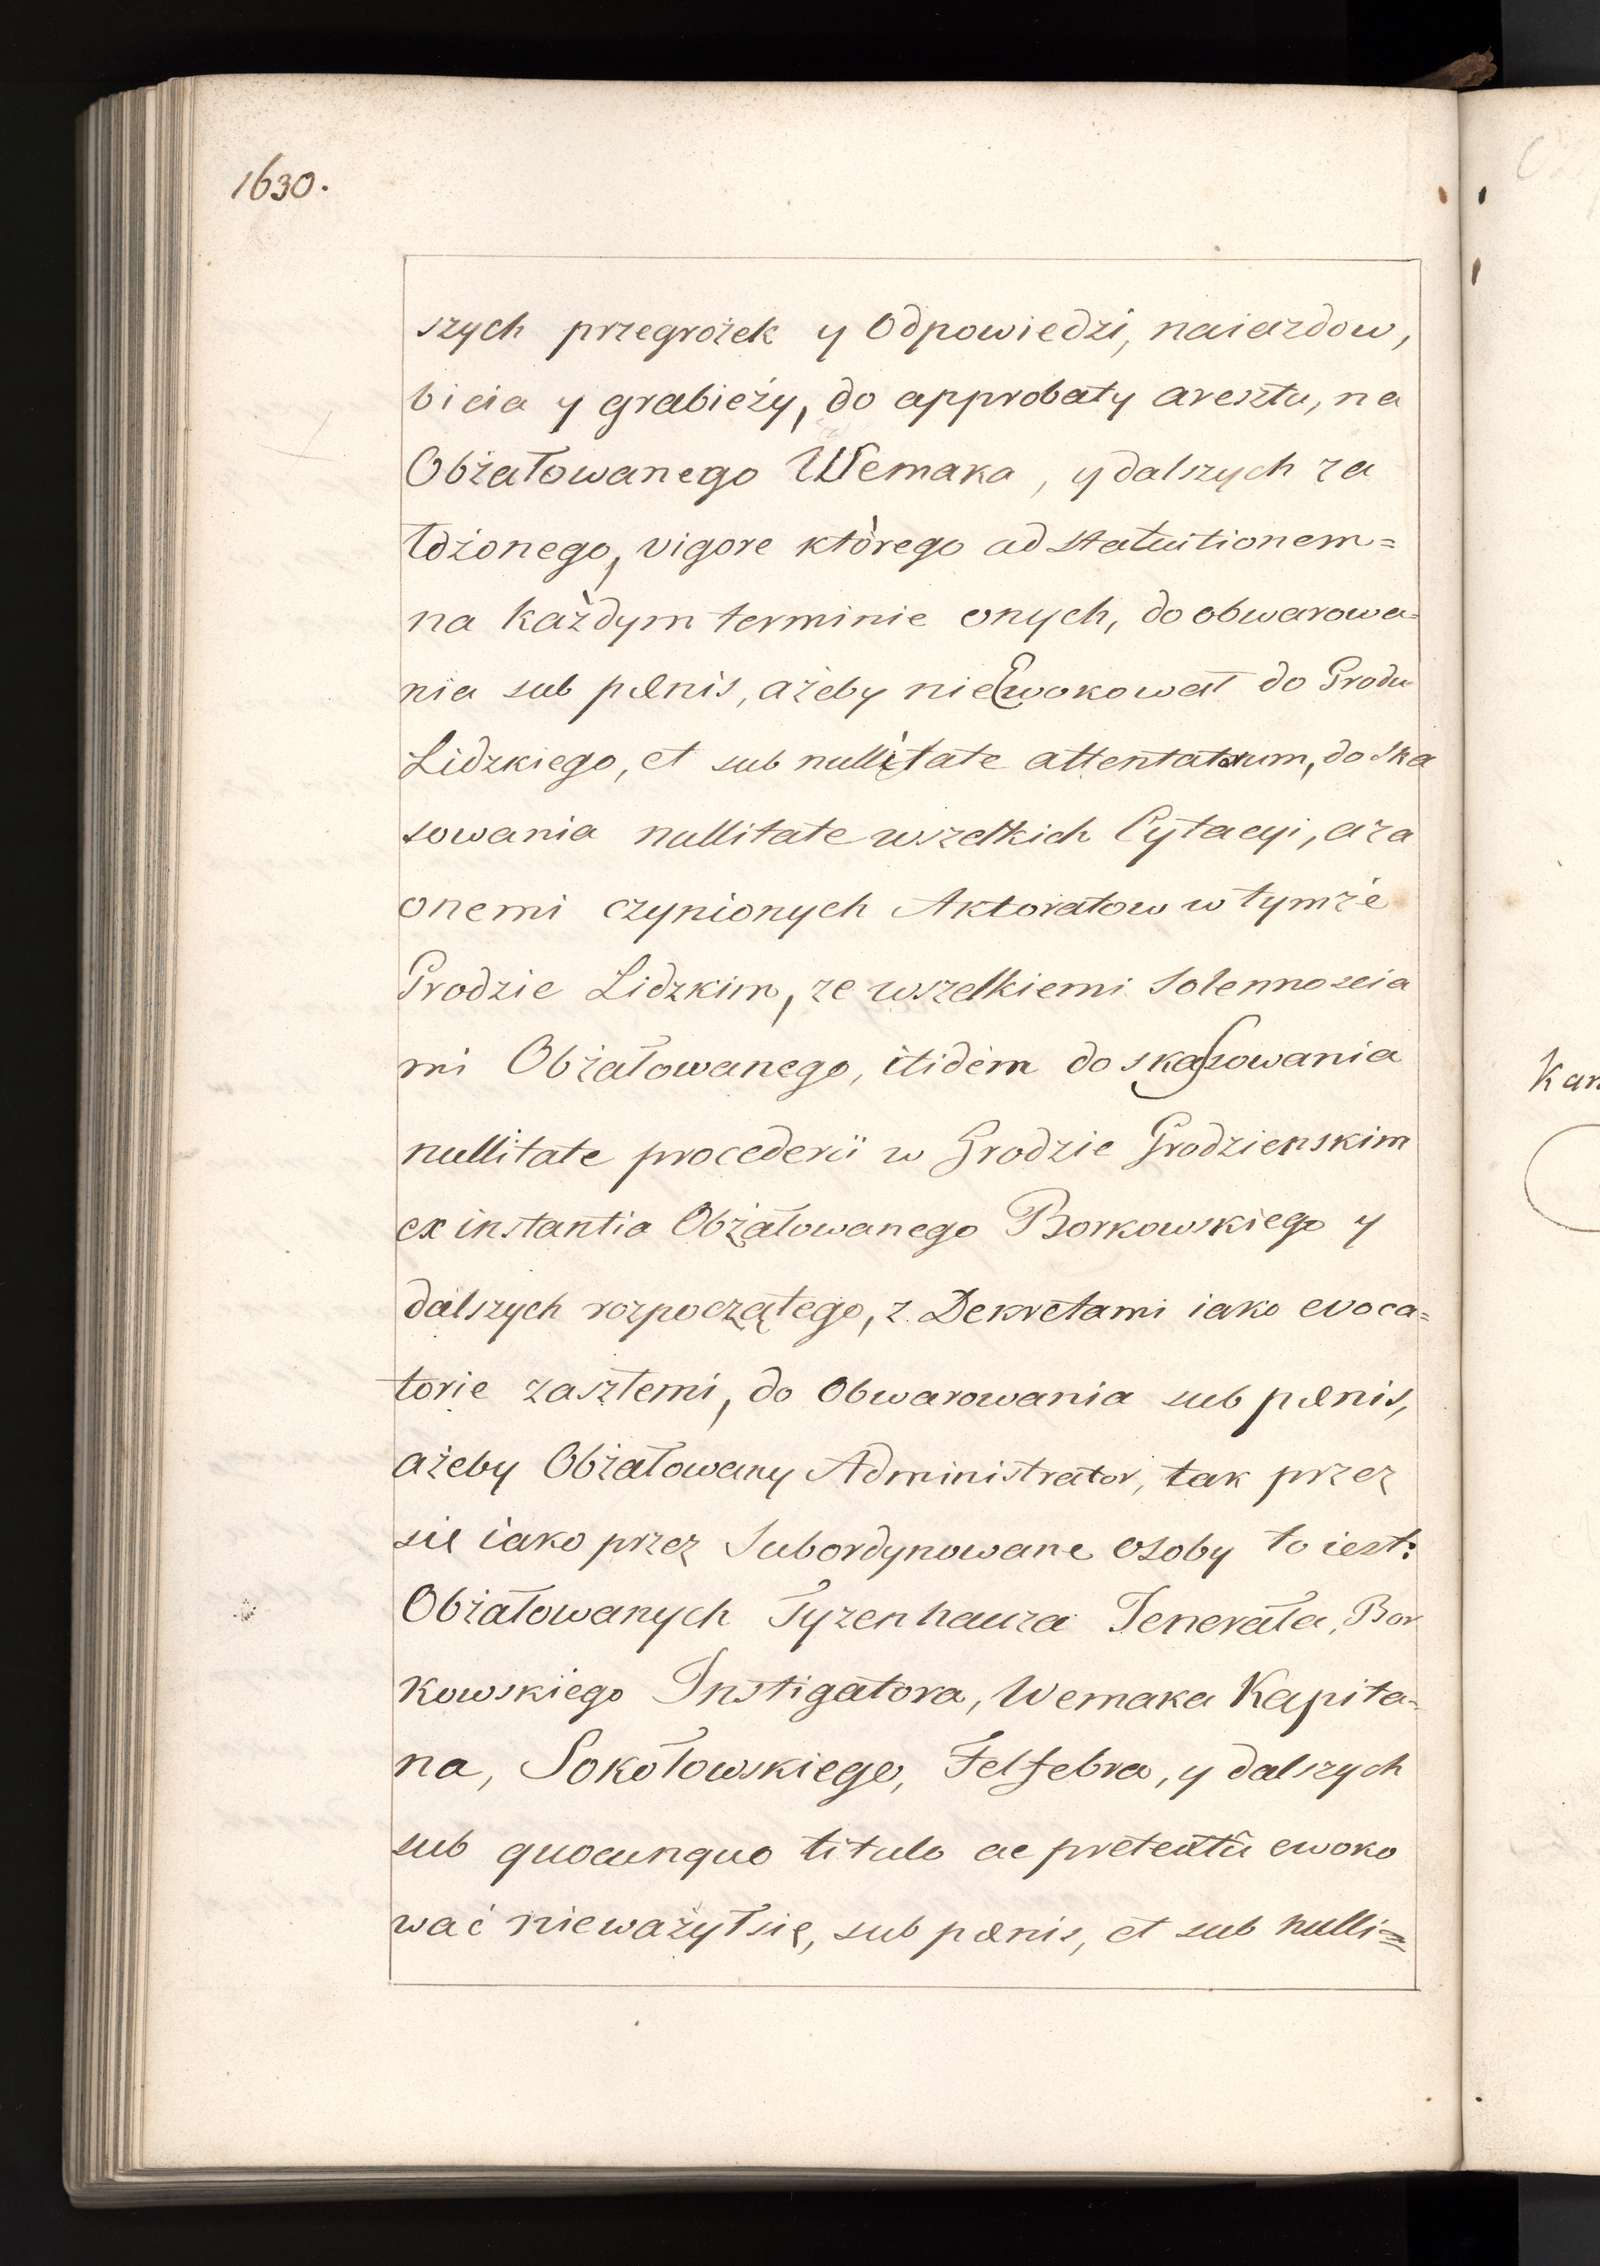 1630.
szych przegrożek y Odpowiedzi, naiazdow,
bicia y grabieży, do approbaty aresztu, na
Obżałowanego Wemaka, y dalszych za
łożonego, vigore którego ad statuitionem=
na każdym terminie onych, do obwarowa=
nia sub pænis, ażeby nie Ewokował do Grodu
Lidzkiego, et sub nullitate attentatorum, do ska
sowania nullitate wszelkich Cytacyi, a za
onemi czynionych Aktoratow w tymże
Grodzie Lidzkim, ze wszelkiemi solennoscia
mi Obżałowanego, itidem do skassowania
nullitate procederii w Grodzie Grodzienskim
ex instantia Obżałowanego Borkowskiego y
dalszych rozpoczątego, z Dekretami iako evoca=
torie zaszłemi, do Obwarowania sub pænis,
ażeby Obżałowany Administrator, tak przez
się iako przez Subordynowane osoby to iest:
Obżałowanych Tyzenhauza Jenerała, Bor
kowskiego Instigatora, Wemaka Kapita=
na, Sokołowskiego, Felfebra, y dalszych
sub quocunquo titulo ac pretextû ewoko
wać nieważył się, sub pænis, et sub nulli=
Kar